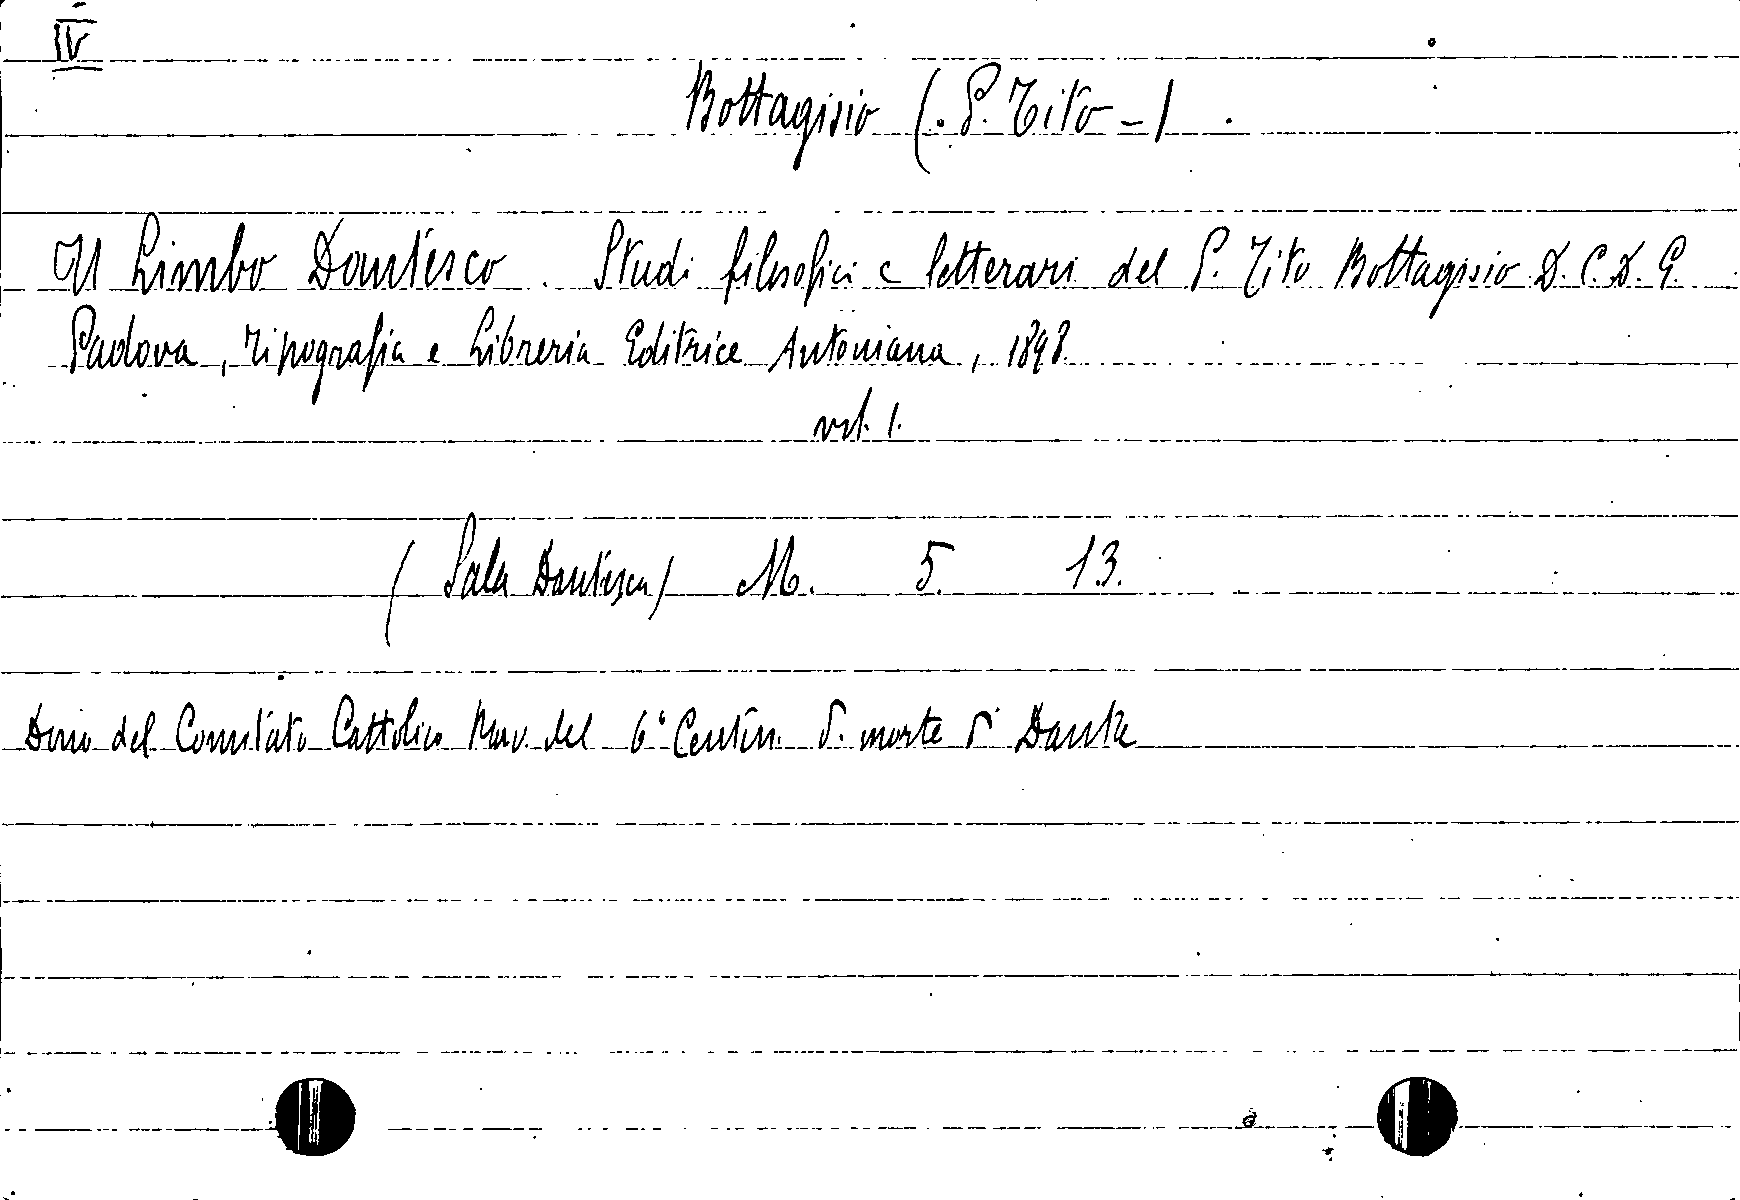 IV
Bottagisio (P. Tito -)
Il Limbo Dantesco. Studi filosofici e letterari del P. Tito Bottagisio D. C. D. G.
Padova, Tipografia e Libreria Editrice Antoniana, 1898.
vol. 1.
(Sala Dantesca) M. 5. 13.
Dono del Comitato Cattolico Rav. del 6° Centen. d. morte d. Dante